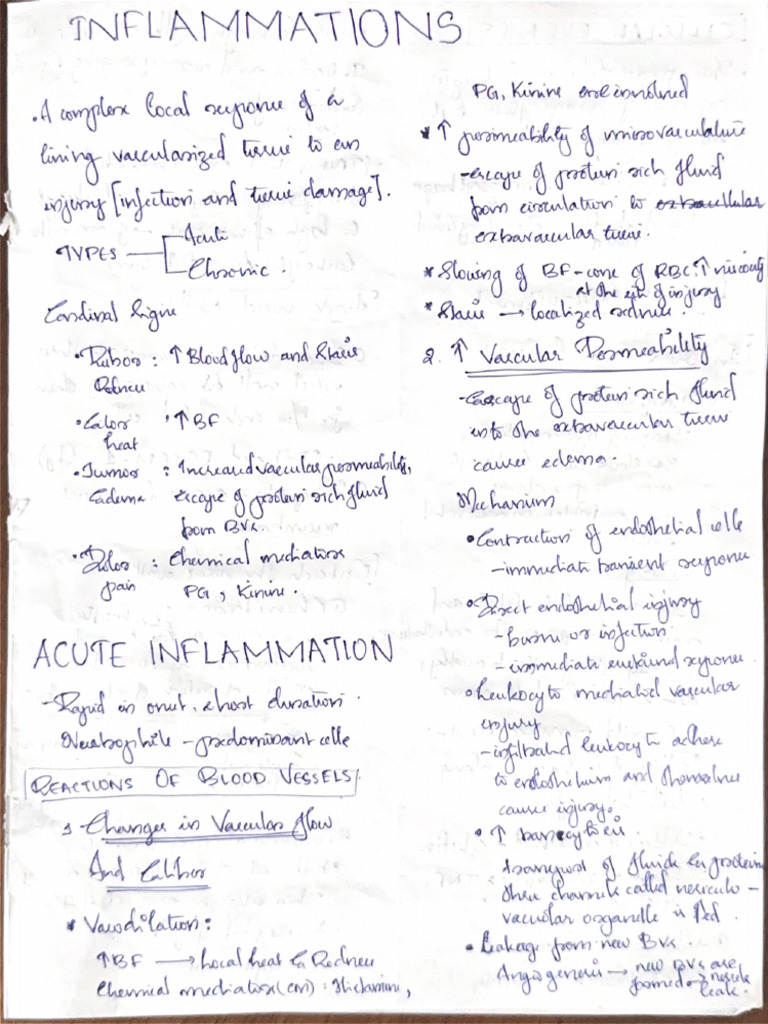 INFLAMMATIONS
• A complex local response of a
lining vascularized tissue to an
injury [infection and tissue damage].
TYPES Acute
Chronic
Cardinal Signs
• Rubor : ↑ Blood flow and Stasis
Redness
• Calor : ↑ BF
heat
• Tumor : Increased vascular permeability,
Edema escape of protein rich fluid
from BVs
• Dolor : Chemical mediators
pain PG, Kinins.
ACUTE INFLAMMATION
- Rapid in onset, short duration.
Neutrophils - predominant cells
REACTIONS OF BLOOD VESSELS
1 Changes in Vascular flow
And Caliber
* Vasodilation :
↑ BF → Local heat & Redness
Chemical mediators (cm) : Histamine,
PG, Kinins are involved
* ↑ permeability of microvasculature
- escape of protein rich fluid
from circulation to extracellular
extravascular tissue.
* Slowing of BF - conc of RBC, ↑ viscosity
at the site of injury
* Stasis → localized redness.
2. ↑ Vascular Permeability
- Escape of protein rich fluid
into the extravascular tissue
cause edema.
Mechanism
• Contraction of endothelial cells
- immediate transient response
• Direct endothelial injury
- burns or infection.
- immediate sustained response
• Leukocyte mediated vascular
injury
- infiltrated leukocyte adhere
to endothelium and themselves
cause injury.
• ↑ transcytosis.
transport of fluids & proteins
thru channels called vesiculo -
vacuolar organelle is ↑ed.
• Leakage from new BVs.
Angiogenesis → new BVs are
formed → vessels
leak.